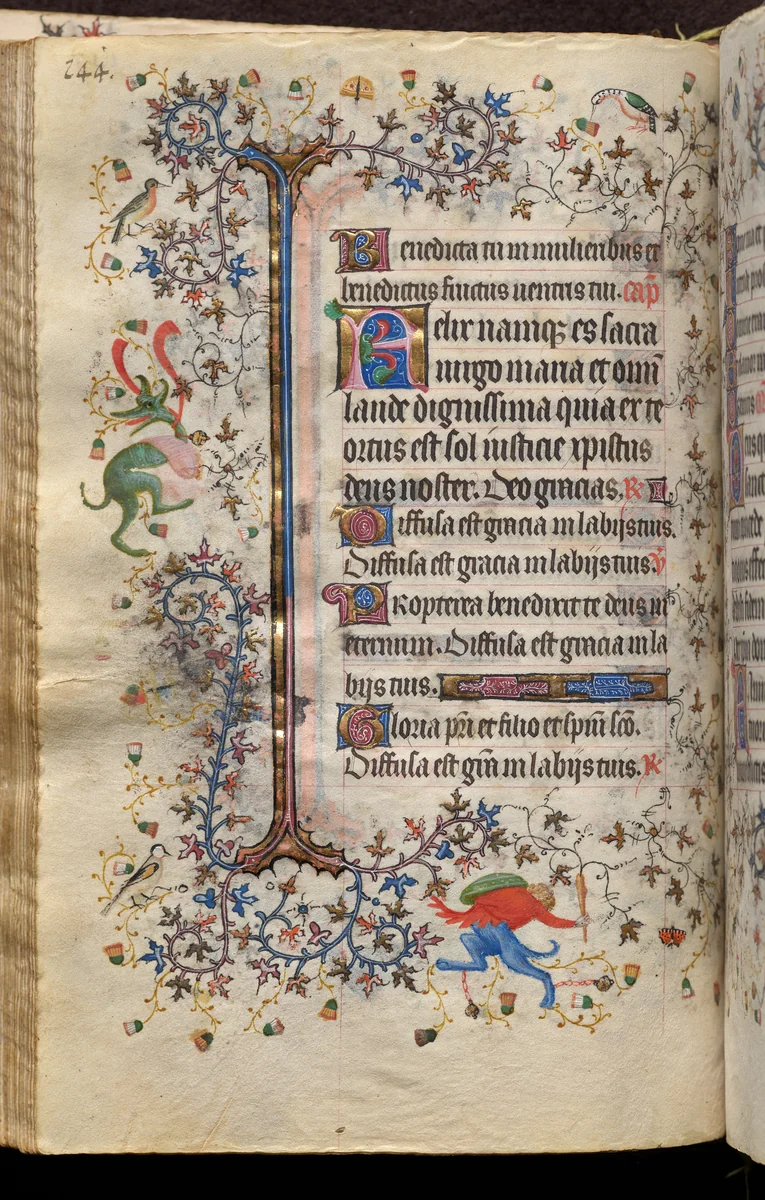 244.
Benedicta tu in mulieribus et
benedictus fructus uentris tui. cap̄
Felix namqꝫ es sacra
uirgo maria et omī
laude dignissima quia ex te
ortus est sol iusticie xpistus
deus noster. Deo gracias. R̄
Diffusa est gracia in labijs tuis.
Diffusa est gracia in labijs tuis. v̄
Propterea benedixit te deus in
eternum. Diffusa est gracia in la
bijs tuis.
Gloria pr̄i et filio et sp̄ui sc̄o.
Diffusa est gr̄a in labijs tuis. R̄